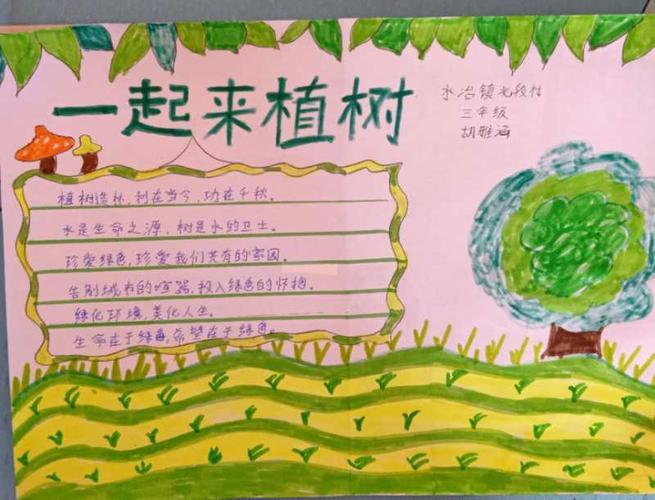 一起来植树
水冶镇北段村
三年级
胡雅涵
植树造林,利在当今,功在千秋。
水是生命之源,树是水的卫士。
珍爱绿色,珍爱我们共有的家园。
告别城市的喧嚣,投入绿色的怀抱。
绿化环境,美化人生。
生命在于绿色,希望在于绿色。